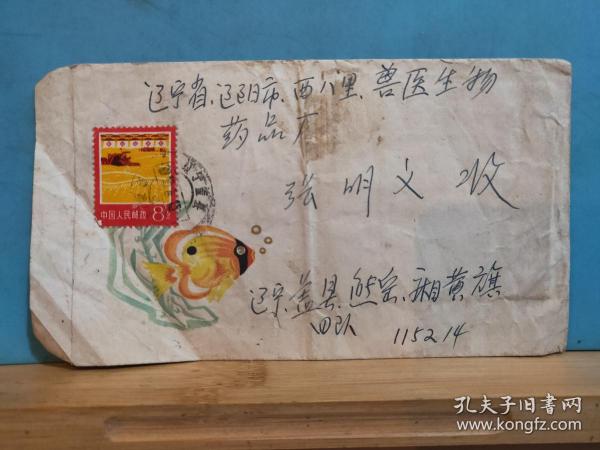 辽宁省、辽阳市、西八里、兽医生物
药品厂
张明文收
中国人民邮政 8分
辽宁、盖县、熊岳、厢黄旗
四队 115214
孔夫子旧书网
www.kongfz.com